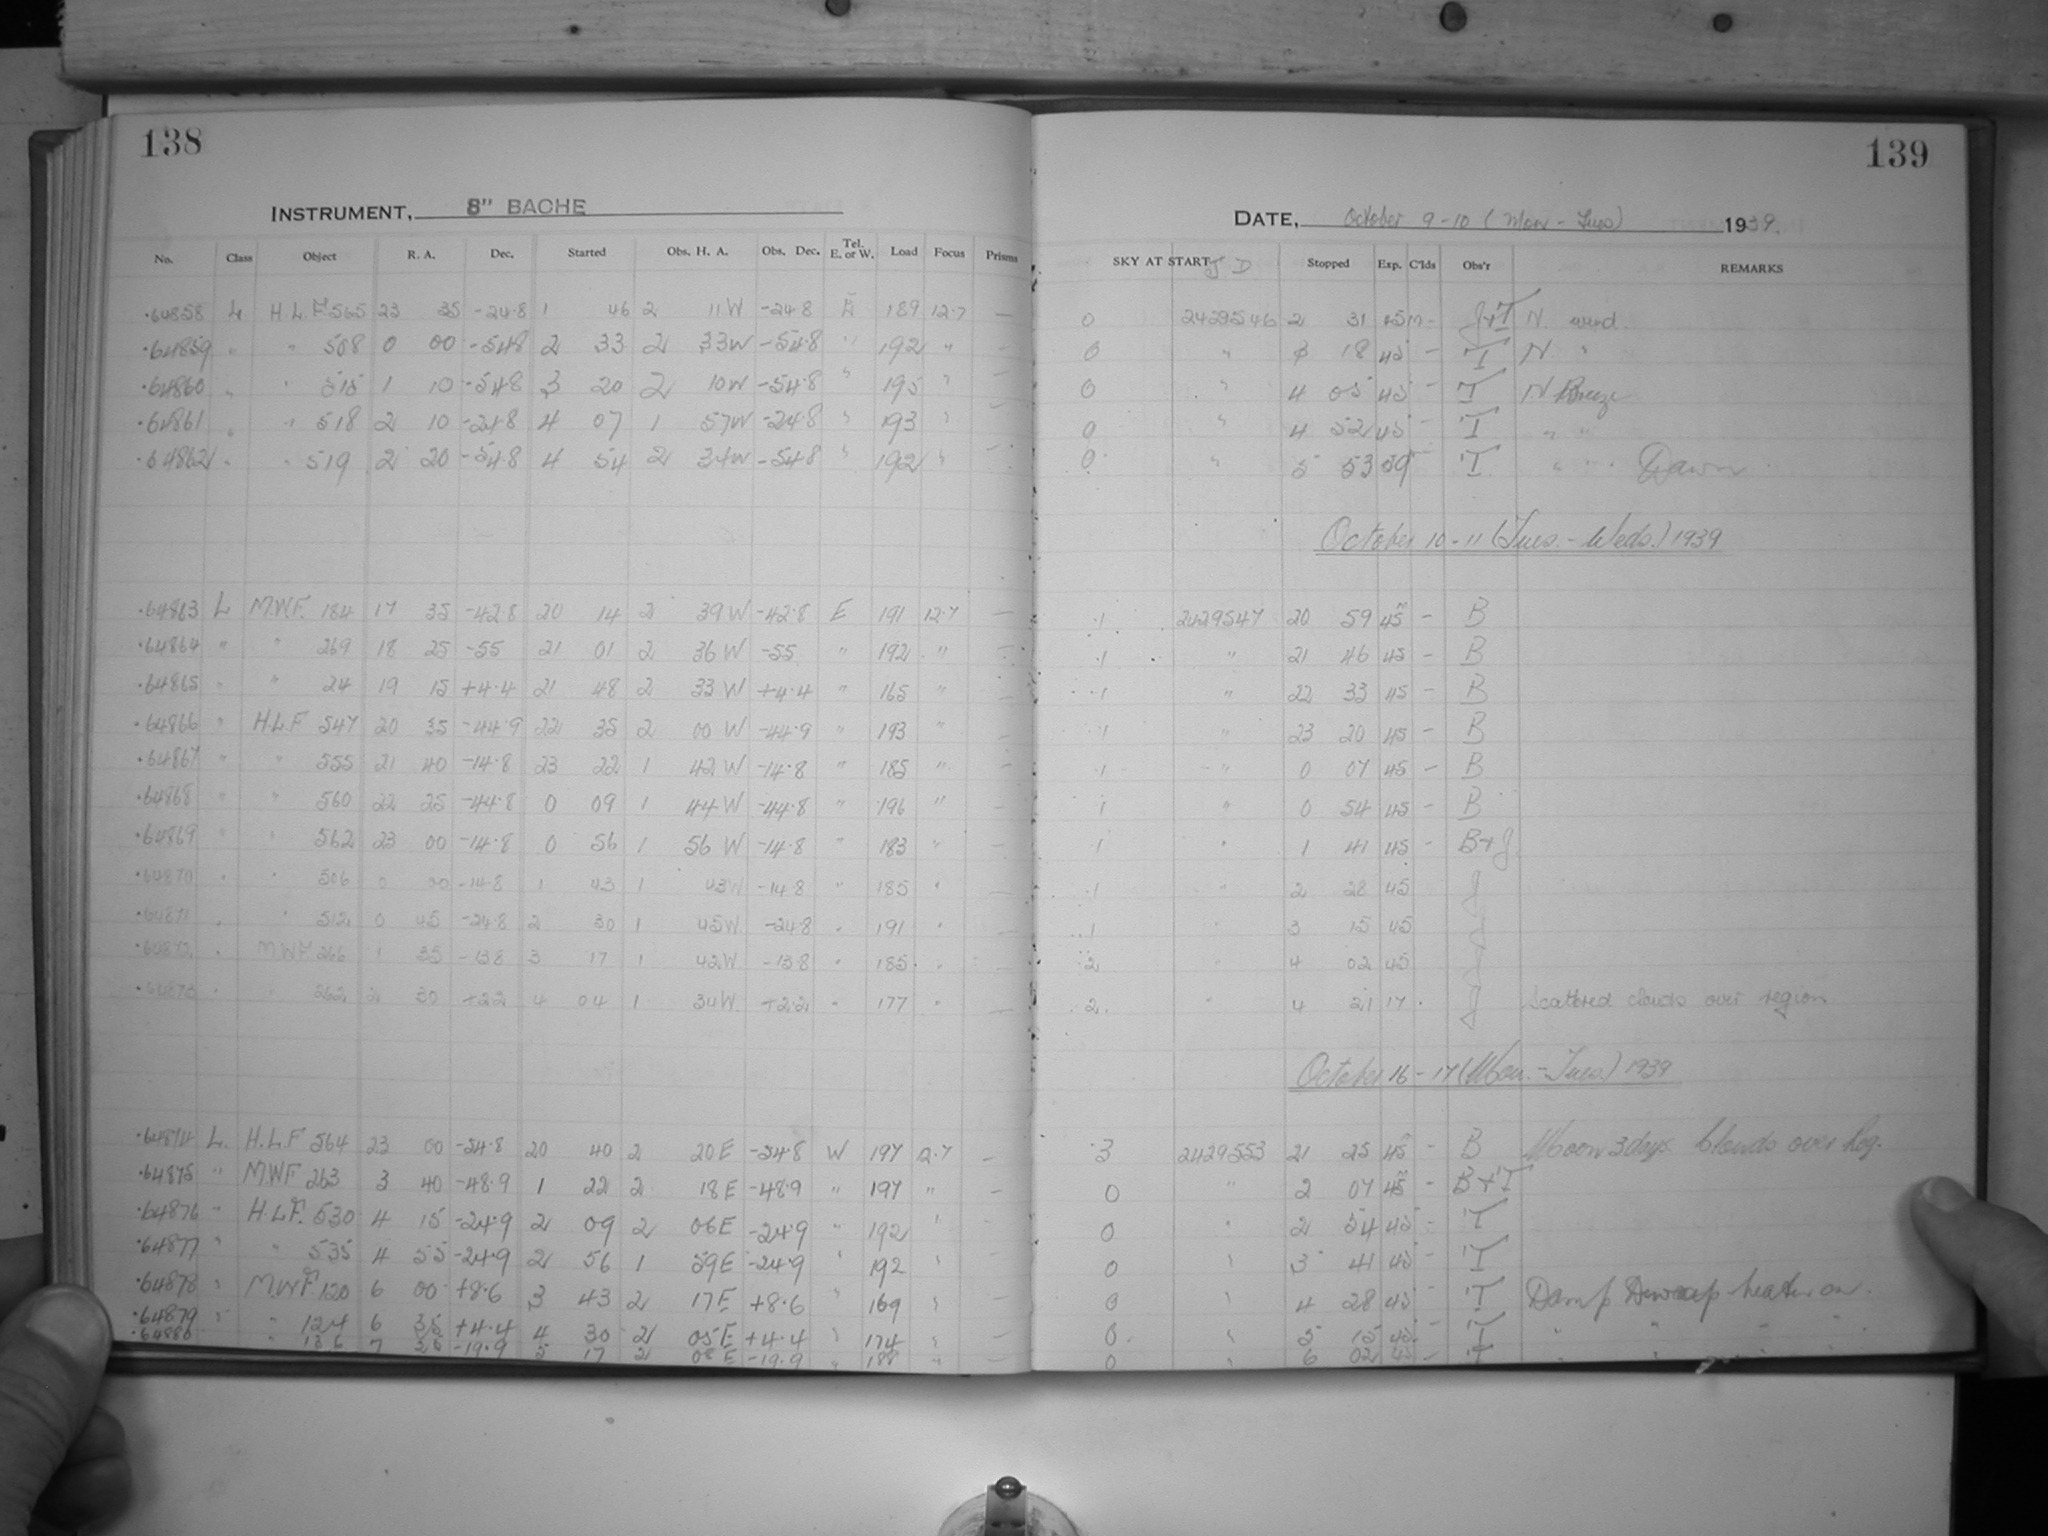 138
INSTRUMENT, 8" BACHE
No. Class Object R. A. Dec. Started Obs. H. A. Obs. Dec. Tel. E. or W. Load Focus Prisms
.64858 L H.L.F 565 23 35 -24.8 1 46 2 11W -24.8 189 12.7 —
.64859 " " 508 0 00 -54.8 2 33 2 33W -54.8 " 192 "
.64860 " " 515 1 10 -54.8 3 20 2 10W -54.8 " 195 " —
.64861 " " 518 2 10 -24.8 4 07 1 57W -24.8 " 193 " —
.64862 " " 519 2 20 -54.8 4 54 2 34W -54.8 " 192 " —
.64863 L M.W.F. 184 17 35 -42.8 20 14 2 39W -42.8 E 191 12.7 —
.64864 " " 269 18 25 -55 21 01 2 36W -55 " 192 " —
.64865 " " 24 19 15 +4.4 21 48 2 33W +4.4 " 165 " —
.64866 " H.L.F 547 20 35 -44.9 22 35 2 00W -44.9 " 193 " —
.64867 " " 555 21 40 -14.8 23 22 1 42W -14.8 " 185 " —
.64868 " " 560 22 25 -44.8 0 09 1 44W -44.8 " 196 " —
.64869 " " 562 23 00 -14.8 0 56 1 56W -14.8 " 183 " —
.64870 " " 506 0 00 -14.8 1 43 1 43W -14.8 " 185 " —
.64871 " " 512 0 45 -24.8 2 30 1 45W -24.8 " 191 " —
.64872 " M.W.F 266 1 35 -13.8 3 17 1 42W -13.8 " 185 " —
.64873 " " 262 2 30 +2.2 4 04 1 34W +2.2 " 177 " —
.64874 L. H.L.F 564 23 00 -54.8 20 40 2 20E -54.8 W 197 12.7 —
.64875 " MWF 263 3 40 -48.9 1 22 2 18E -48.9 " 197 " —
.64876 " H.L.F. 530 4 15 -24.9 2 09 2 06E -24.9 " 192 "
.64877 " " 535 4 55 -24.9 2 56 1 59E -24.9 " 192 " —
.64878 " M.W.F 120 6 00 +8.6 3 43 2 17E +8.6 " 169 " —
.64879 " " 124 6 35 +4.4 4 30 2 05E +4.4 " 174 " —
.64880 " 136 7 25 -19.9 5 17 2 08E -19.9 " 188 " —
139
DATE, October 9-10 (Mon - Tues) 1939.
SKY AT START J D Stopped Exp. C'lds Obs'r REMARKS
0 2429546 2 31 45m - J+T N. wind.
0 " 3 18 45 - T N "
0 " 4 05 45 - T N Breeze
0 " 4 52 45 - T " "
0 " 5 53 59 T " " Dawn.
October 10-11 (Tues. - Weds.) 1939
.1 2429547 20 59 45m - B
.1 " 21 46 45 - B
.1 " 22 33 45 - B
.1 " 23 20 45 - B
.1 " 0 07 45 - B
1 " 0 54 45 - B
1 " 1 41 45 - B+J
.1 " 2 28 45 J
.1 " 3 15 45 J
.2 " 4 02 45 J
.2. " 4 21 17. J Scattered clouds over region
October 16-17 (Mon. - Tues.) 1939
.3 2429553 21 25 45m - B Moon 3 days. Clouds over Reg.
0 " 2 07 45m - B+T
0 " 2 54 45 - T
0 " 3 41 45 - T
0 " 4 28 45 - T Damp Dewcap heater on.
0. " 5 15 45 T " " "
0 " 6 02 45 - T